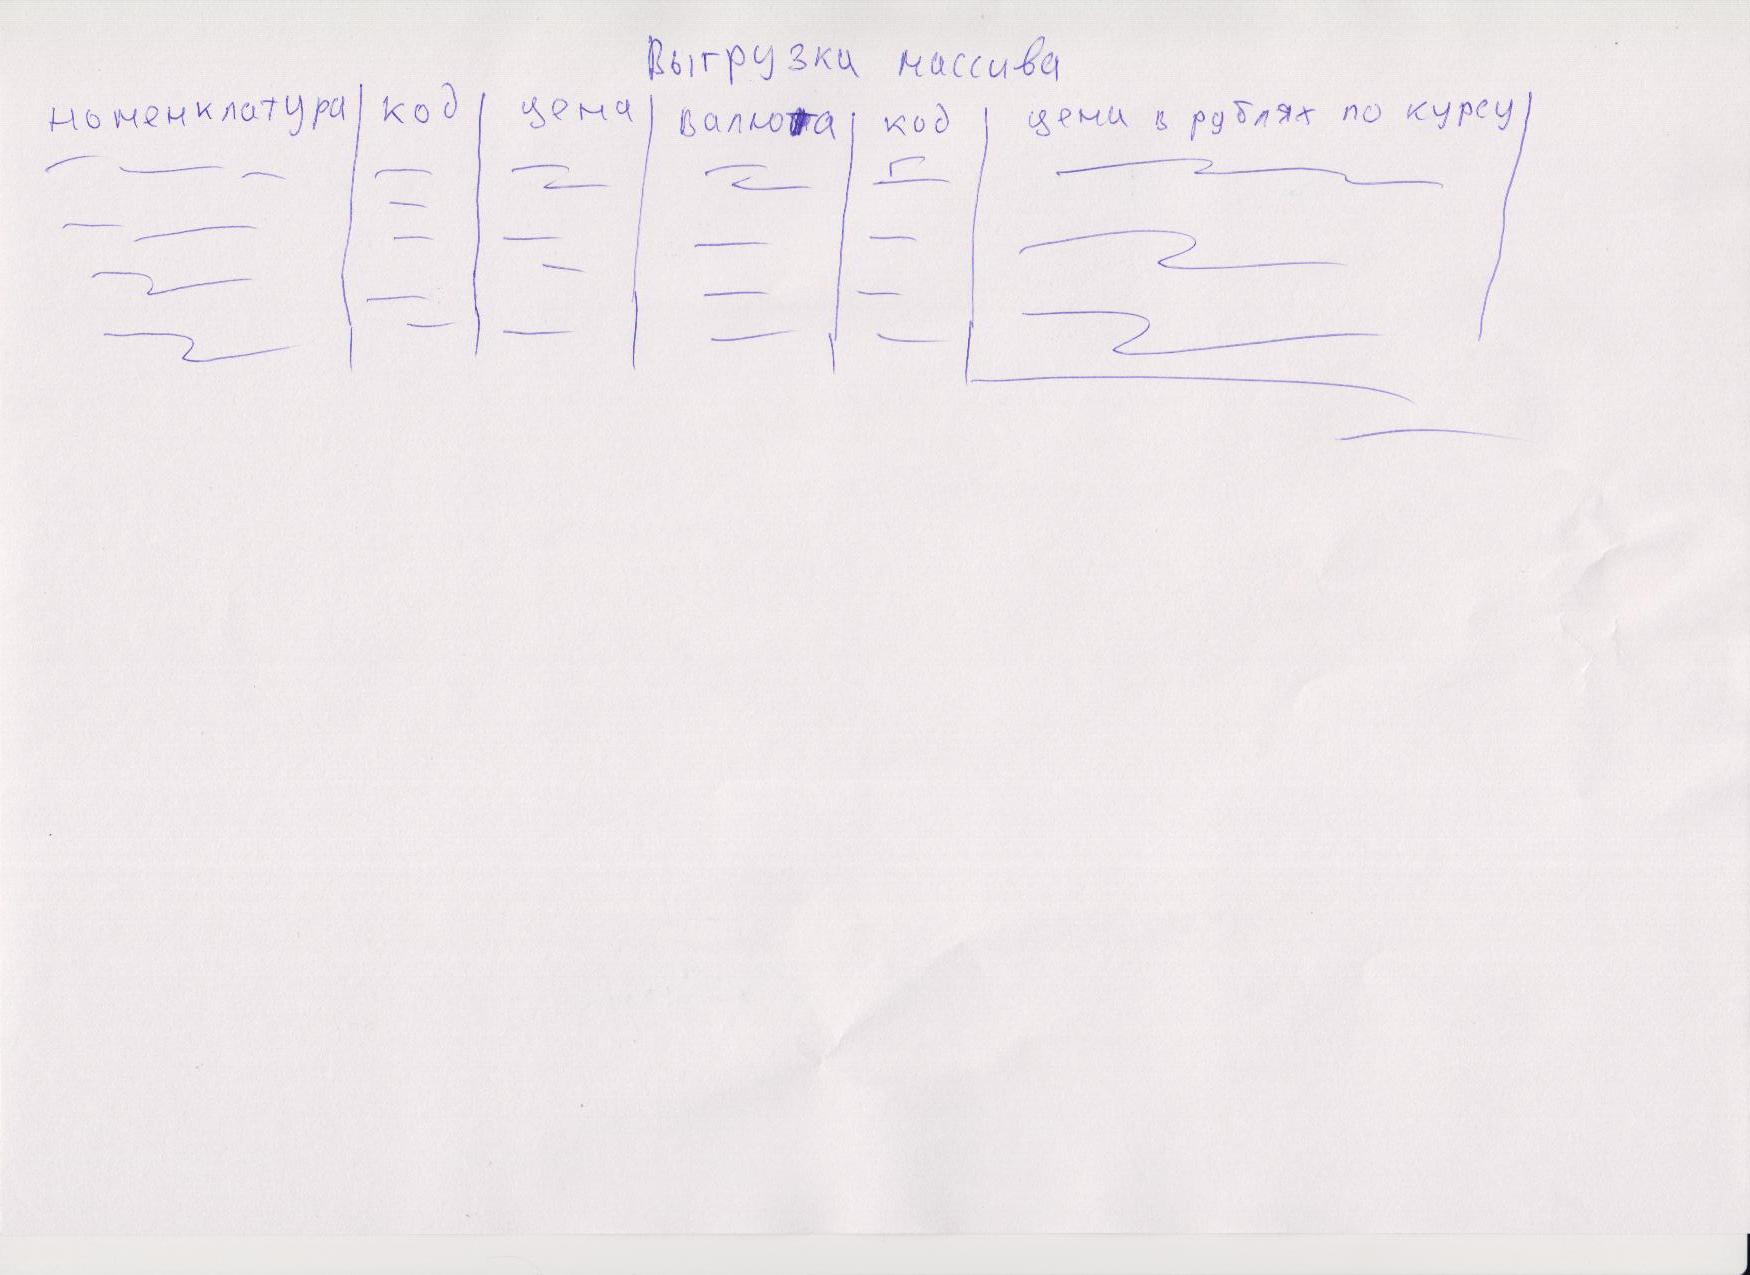 Выгрузка массива
номенклатура код цена валюта код цена в рублях по курсу